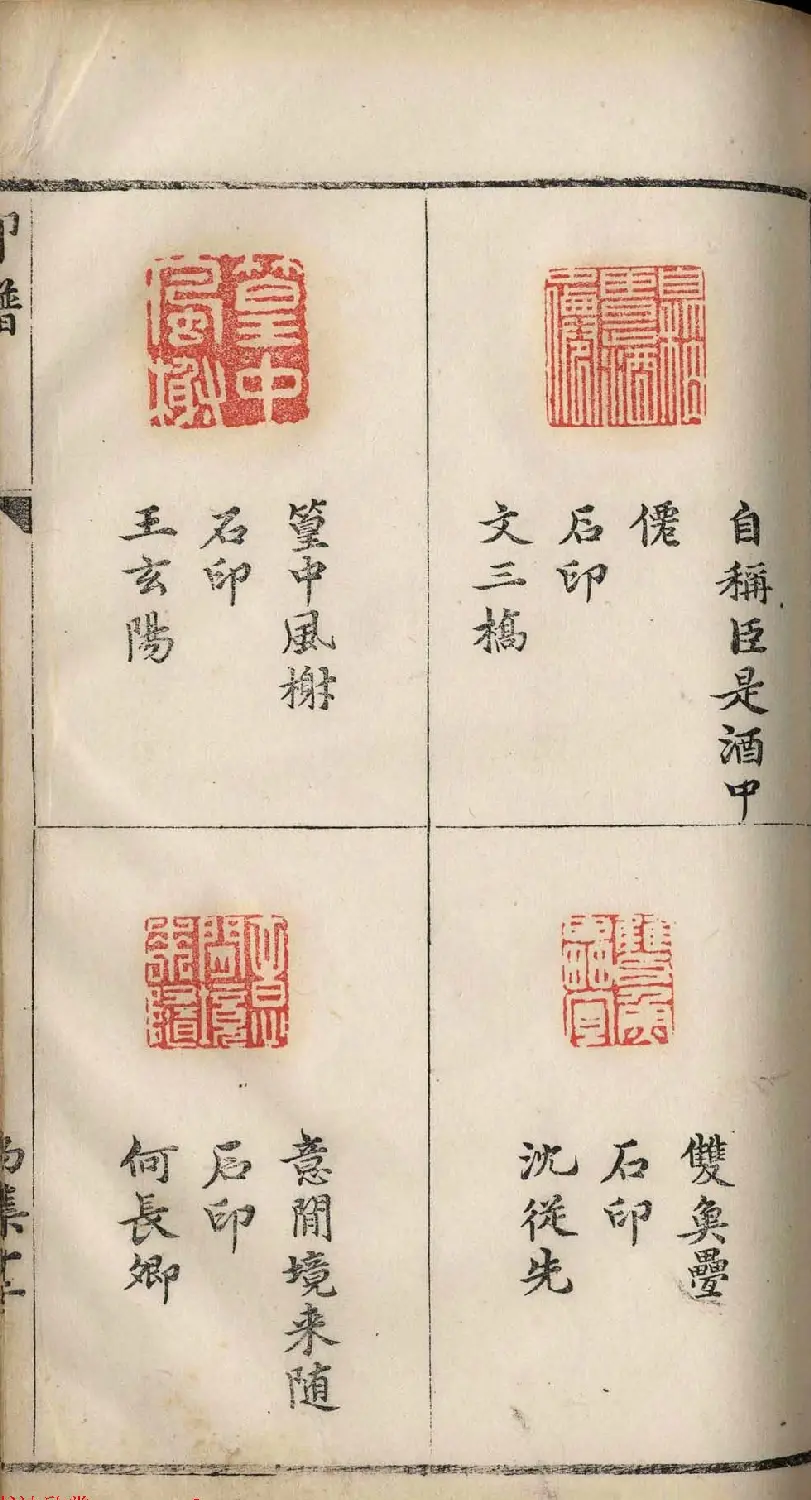 自稱臣是酒中
僊
石印
文三橋
雙魚罍
石印
沈從先
篁中風榭
石印
王玄陽
意閒境来随
石印
何長卿
印譜